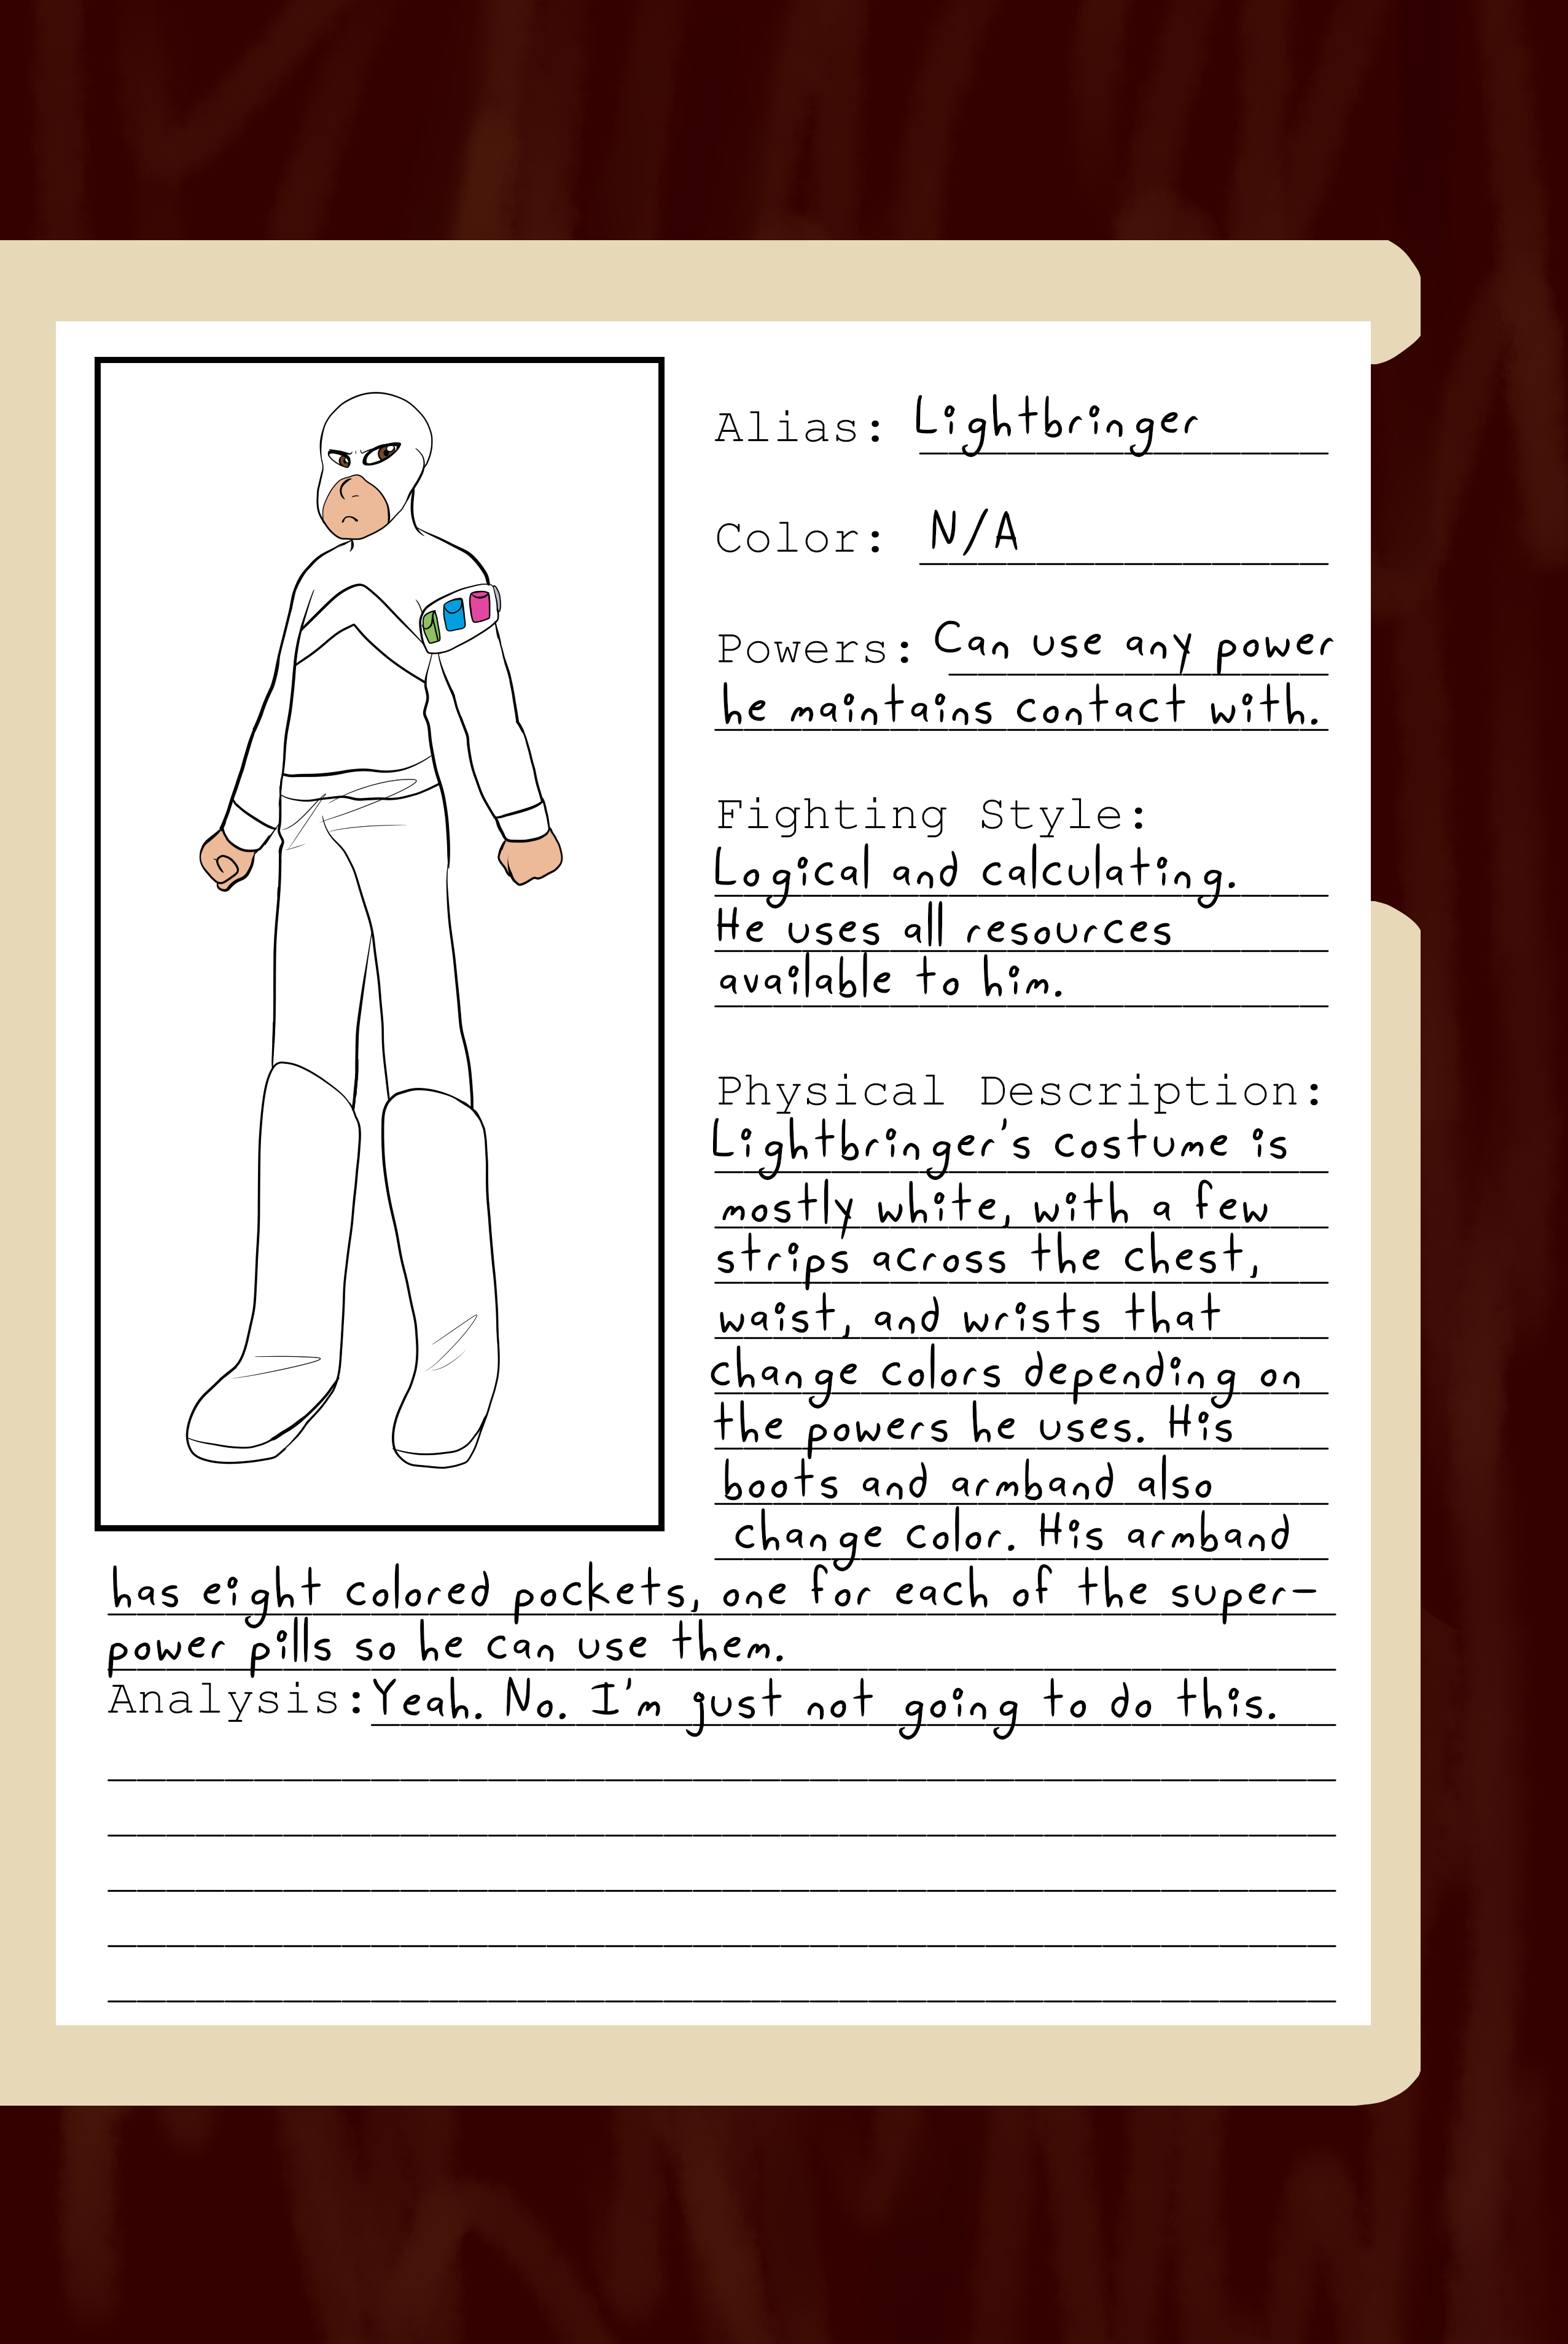 Alias: Lightbringer
Color: N/A
Powers: Can use any power
he maintains contact with.
Fighting Style:
Logical and calculating.
He uses all resources
available to him.
Physical Description:
Lightbringer's costume is
mostly white, with a few
strips across the chest,
waist, and wrists that
change colors depending on
the powers he uses. His
boots and armband also
change color. His armband
has eight colored pockets, one for each of the super-
power pills so he can use them.
Analysis: Yeah. No. I'm just not going to do this.